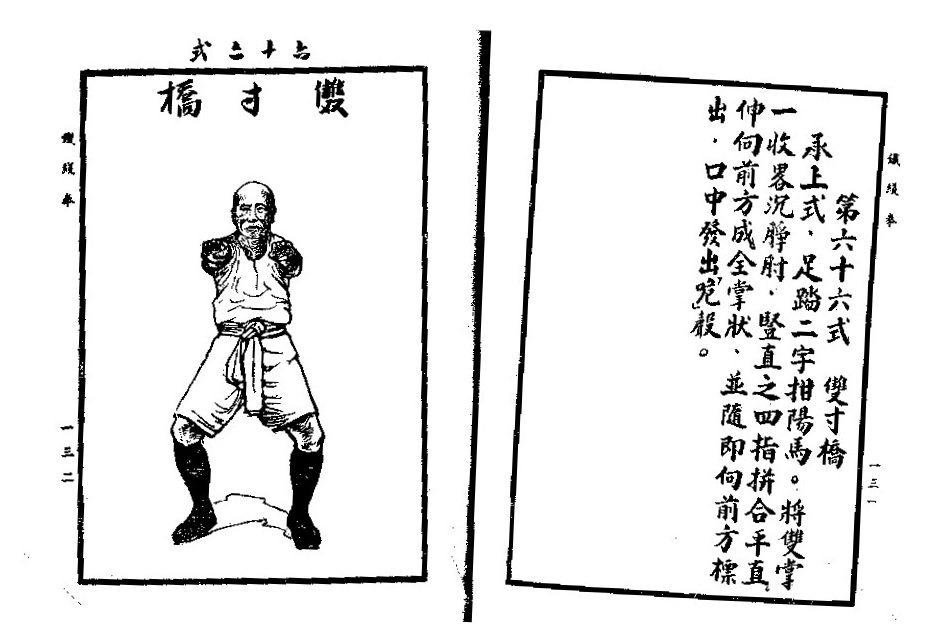 鐵綫拳
一三一
第六十六式 雙寸橋
承上式、足踏二字拑陽馬。將雙掌
一收畧沉膊肘、豎直之四指拼合平直、
伸向前方成全掌狀、並隨即向前方標
出、口中發出「」聲。
六十二式
雙寸橋
鐵綫拳
一三二